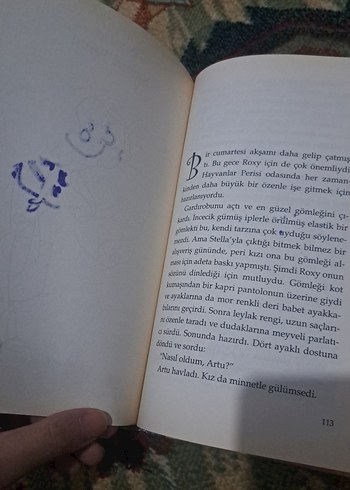 Bir cumartesi akşamı daha gelip çatmış-
tı. Bu gece Roxy için de çok önemliydi.
Hayvanlar Perisi odasında her zaman-
kinden daha büyük bir özenle işe gitmek için
hazırlanıyordu.
Gardırobunu açtı ve en güzel gömleğini çı-
kardı. İncecik gümüş iplerle örülmüş elastik bir
gömlekti bu, kendi tarzına çok uyduğu söylene-
mezdi. Ama Stella'yla çıktığı bitmek bilmez bir
alışveriş gününde, peri kızı ona bu gömleği al-
ması için adeta baskı yapmıştı. Şimdi Roxy onun
sözünü dinlediği için mutluydu. Gömleği kot
kumaşından bir kapri pantolonun üzerine giydi
ve ayaklarına da mor renkli deri babet ayakka-
bılarını geçirdi. Sonra leylak rengi, uzun saçları-
nı özenle taradı ve dudaklarına meyveli parlatı-
cı sürdü. Sonunda hazırdı. Dört ayaklı dostuna
döndü ve sordu:
"Nasıl oldum, Artu?"
Artu havladı. Kız da minnetle gülümsedi.
113